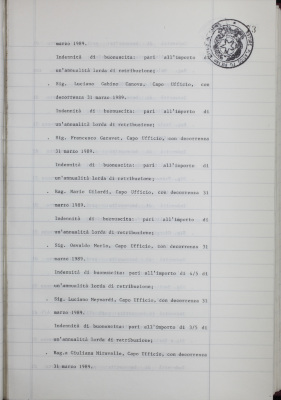 marzo 1989.
Indennità di buonuscita: pari all'importo di
un'annualità lorda di retribuzione;
. Sig. Luciano Cabino Canova, Capo Ufficio, con
decorrenza 31 marzo 1989.
Indennità di buonuscita: pari all'importo di
un'annualità lorda di retribuzione;
. Sig. Francesco Garavet, Capo Ufficio, con decorrenza
31 marzo 1989.
Indennità di buonuscita: pari all'importo di
un'annualità lorda di retribuzione;
. Rag. Mario Gilardi, Capo Ufficio, con decorrenza 31
marzo 1989.
Indennità di buonuscita: pari all'importo di
un'annualità lorda di retribuzione;
. Sig. Osvaldo Merlo, Capo Ufficio, con decorrenza 31
marzo 1989.
Indennità di buonuscita: pari all'importo di 4/5 di
un'annualità lorda di retribuzione;
. Sig. Luciano Meynardi, Capo Ufficio, con decorrenza 31
marzo 1989.
Indennità di buonuscita: pari all'importo di 3/5 di
un'annualità lorda di retribuzione;
. Rag.a Giuliana Miravalle, Capo Ufficio, con decorrenza
31 marzo 1989.